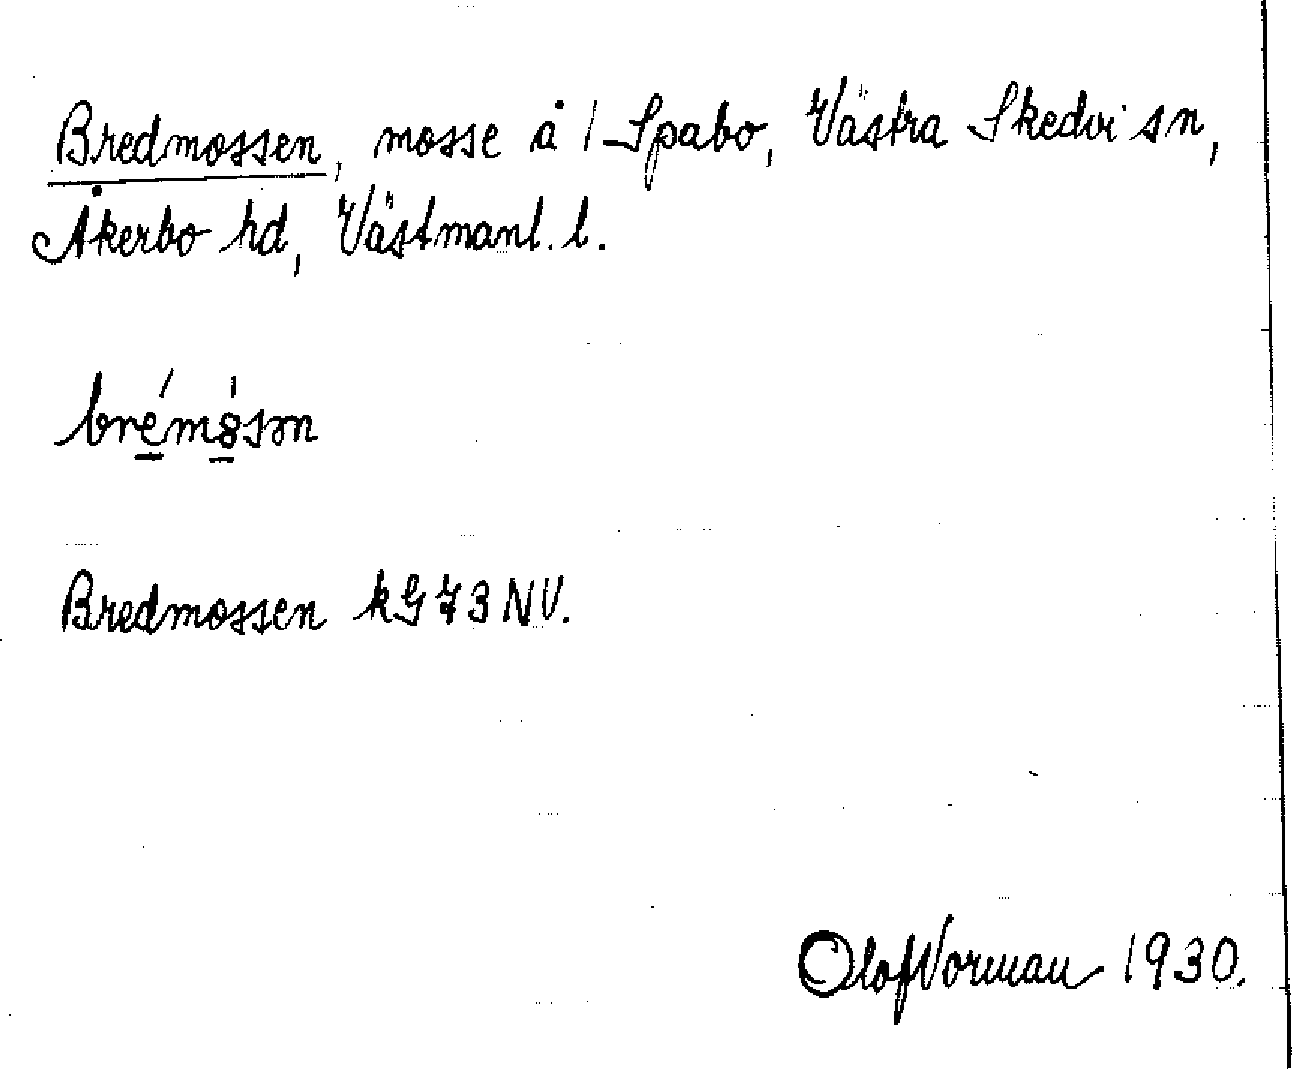 Bredmossen, mosse å 1 Spabo, Västra Skedvi sn,
Åkerbo hd, Västmanl. l.
brémȣ́sən
Bredmossen kG 73 NV.
Olof Norman 1930.